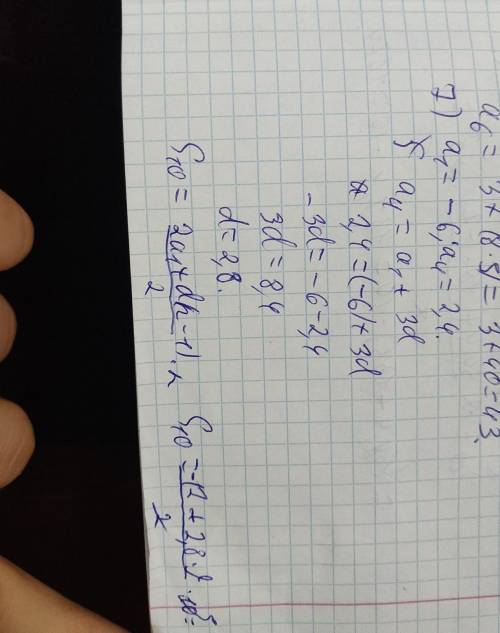 a₆ = 3 + 8·5 = 3 + 40 = 43.
7) a₁ = -6; a₄ = 2,4.
a₄ = a₁ + 3d
2,4 = (-6) + 3d
-3d = -6 - 2,4
3d = 8,4
d = 2,8.
S₁₀ = (2a₁ + d(n - 1))/2 · n S₁₀ =